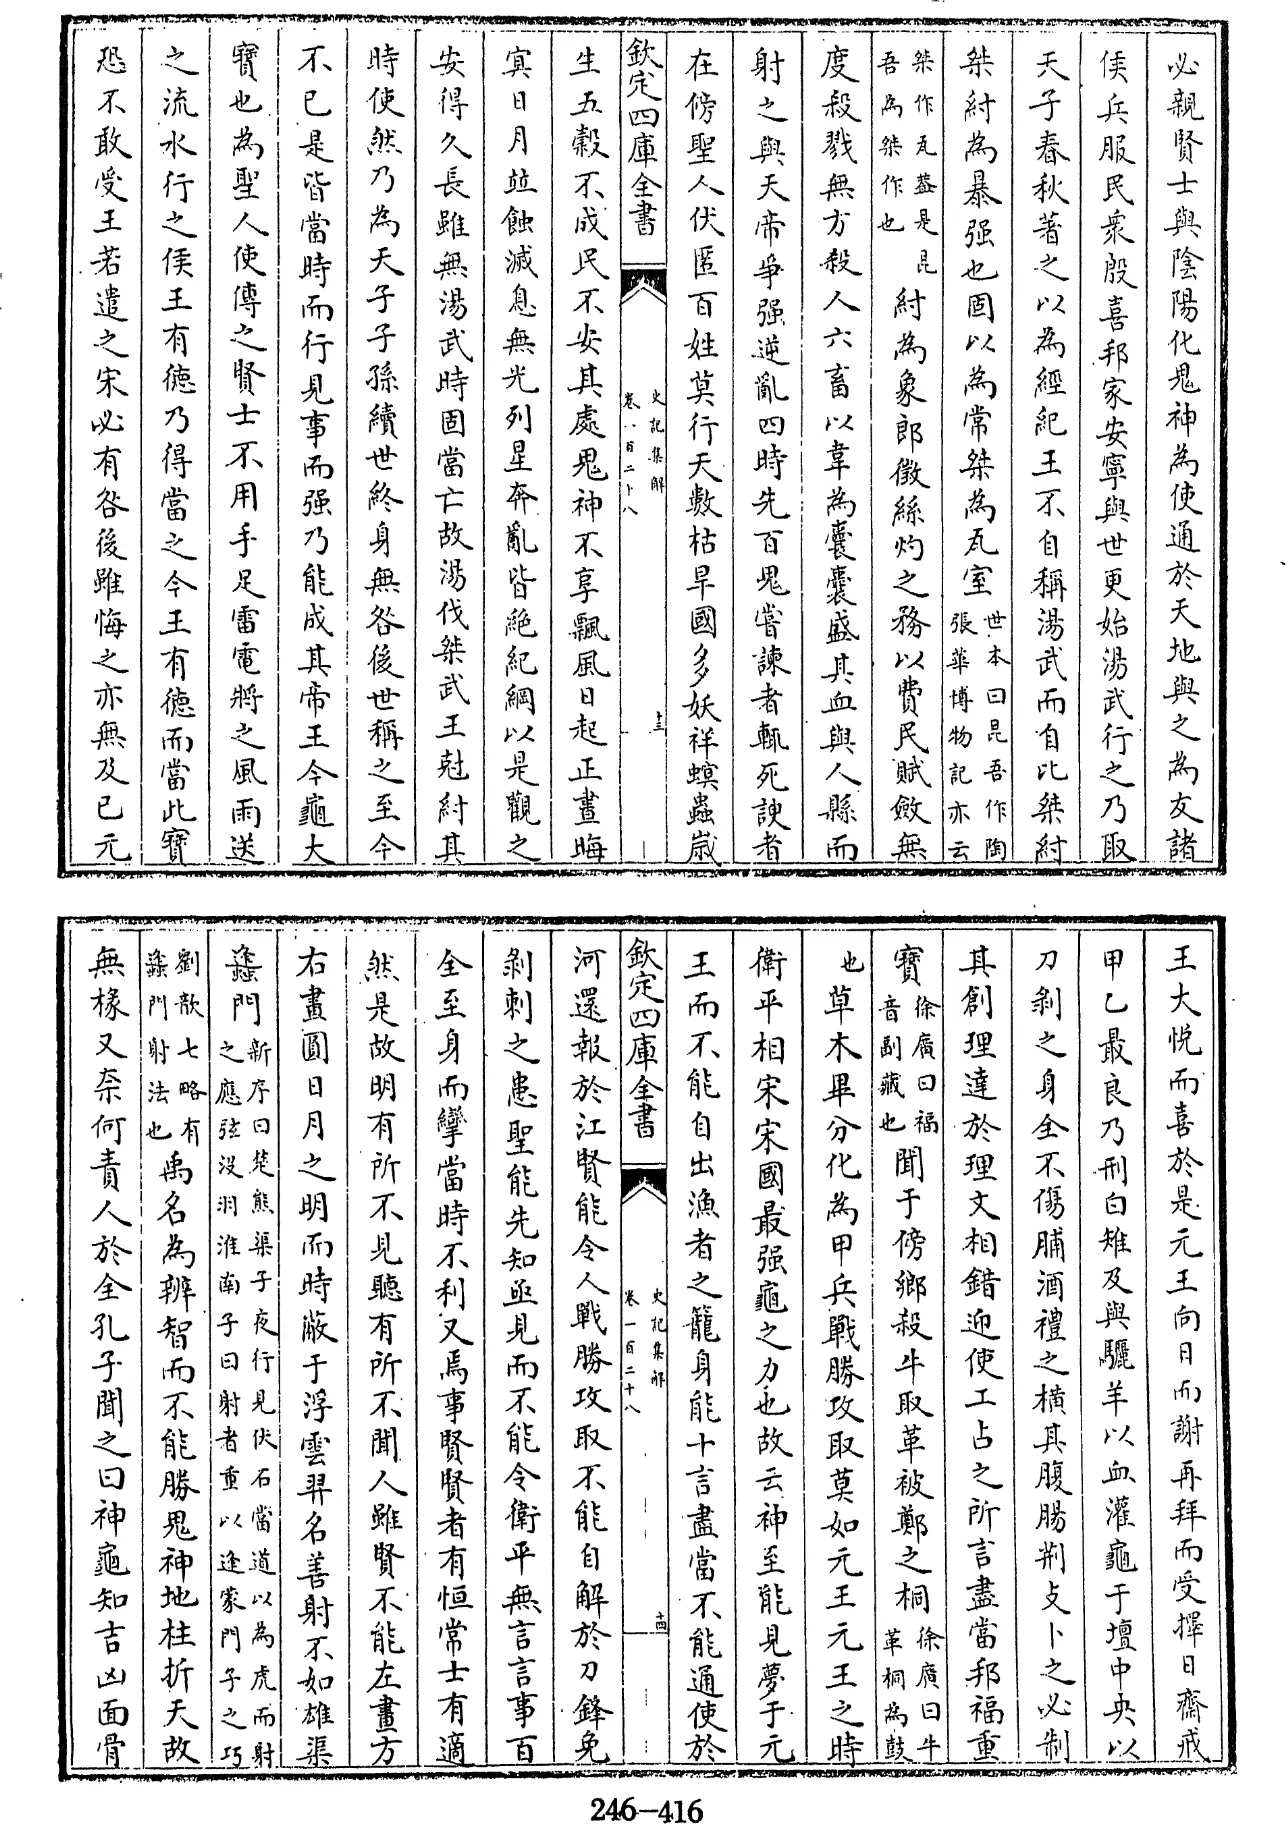 必親賢士與陰陽化鬼神為使通於天地與之為友諸
侯兵服民衆殷喜邦家安寧與世更始湯武行之乃取
天子春秋著之以為經紀王不自稱湯武而自比桀紂
桀紂為暴强也固以為常桀為瓦室世本曰昆吾作陶張華博物記亦云
桀作瓦蓋是昆吾為桀作也紂為象郎徵絲灼之務以費民賦斂無
度殺戮無方殺人六畜以韋為囊囊盛其血與人縣而
射之與天帝爭强逆亂四時先百鬼嘗諫者輒死諛者
在傍聖人伏匿百姓莫行天數枯旱國多妖祥螟蟲歲
欽定四庫全書
史記集解
卷一百二十八
十三
生五穀不成民不安其處鬼神不享飄風日起正晝晦
冥日月竝蝕滅息無光列星奔亂皆絶紀綱以是觀之
安得久長雖無湯武時固當亡故湯伐桀武王尅紂其
時使然乃為天子子孫續世終身無咎後世稱之至今
不已是皆當時而行見事而强乃能成其帝王今龜大
寶也為聖人使傳之賢士不用手足雷電將之風雨送
之流水行之侯王有德乃得當之今王有德而當此寶
恐不敢受王若遣之宋必有咎後雖悔之亦無及已元
王大悅而喜於是元王向日而謝再拜而受擇日齋戒
甲乙最良乃刑白雉及與驪羊以血灌龜于壇中央以
刀剝之身全不傷脯酒禮之橫其腹腸荆支卜之必制
其創理達於理文相錯迎使工占之所言盡當邦福重
寶徐廣曰福音副藏也聞于傍鄉殺牛取革被鄭之桐徐廣曰牛革桐為鼓
也草木畢分化為甲兵戰勝攻取莫如元王元王之時
衛平相宋宋國最强龜之力也故云神至能見夢于元
王而不能自出漁者之籠身能十言盡當不能通使於
欽定四庫全書
史記集解
卷一百二十八
十四
河還報於江賢能令人戰勝攻取不能自解於刀鋒免
剝刺之患聖能先知亟見而不能令衛平無言言事百
全至身而攣當時不利又焉事賢賢者有恒常士有適
然是故明有所不見聽有所不聞人雖賢不能左畫方
右畫圓日月之明而時蔽于浮雲羿名善射不如雄渠
蠭門新序曰楚熊渠子夜行見伏石當道以為虎而射之應弦沒羽淮南子曰射者重以逢蒙門子之巧
劉歆七略有蠭門射法也禹名為辨智而不能勝鬼神地柱折天故
無椽又奈何責人於全孔子聞之曰神龜知吉凶面骨
246-416